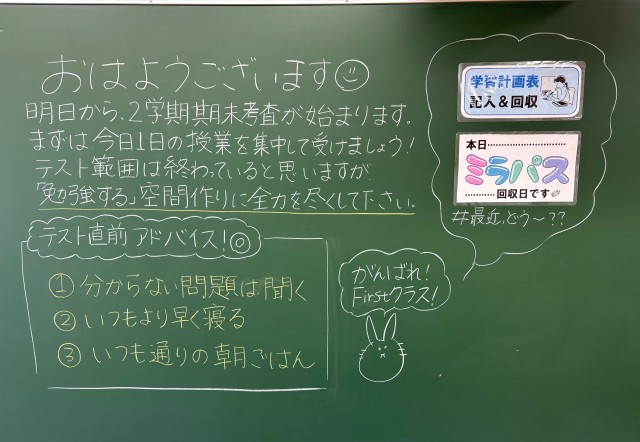 おはようございます
明日から、2学期期末考査が始まります。
まずは今日1日の授業を集中して受けましょう!
テスト範囲は終わっていると思いますが
「勉強する」空間作りに全力を尽くして下さい。
テスト直前アドバイス!
① 分からない問題は聞く
② いつもより早く寝る
③ いつも通りの朝ごはん
がんばれ!
Firstクラス!
学習計画表
記入&回収
本日
ミラパス
回収日です
#最近、どう〜??